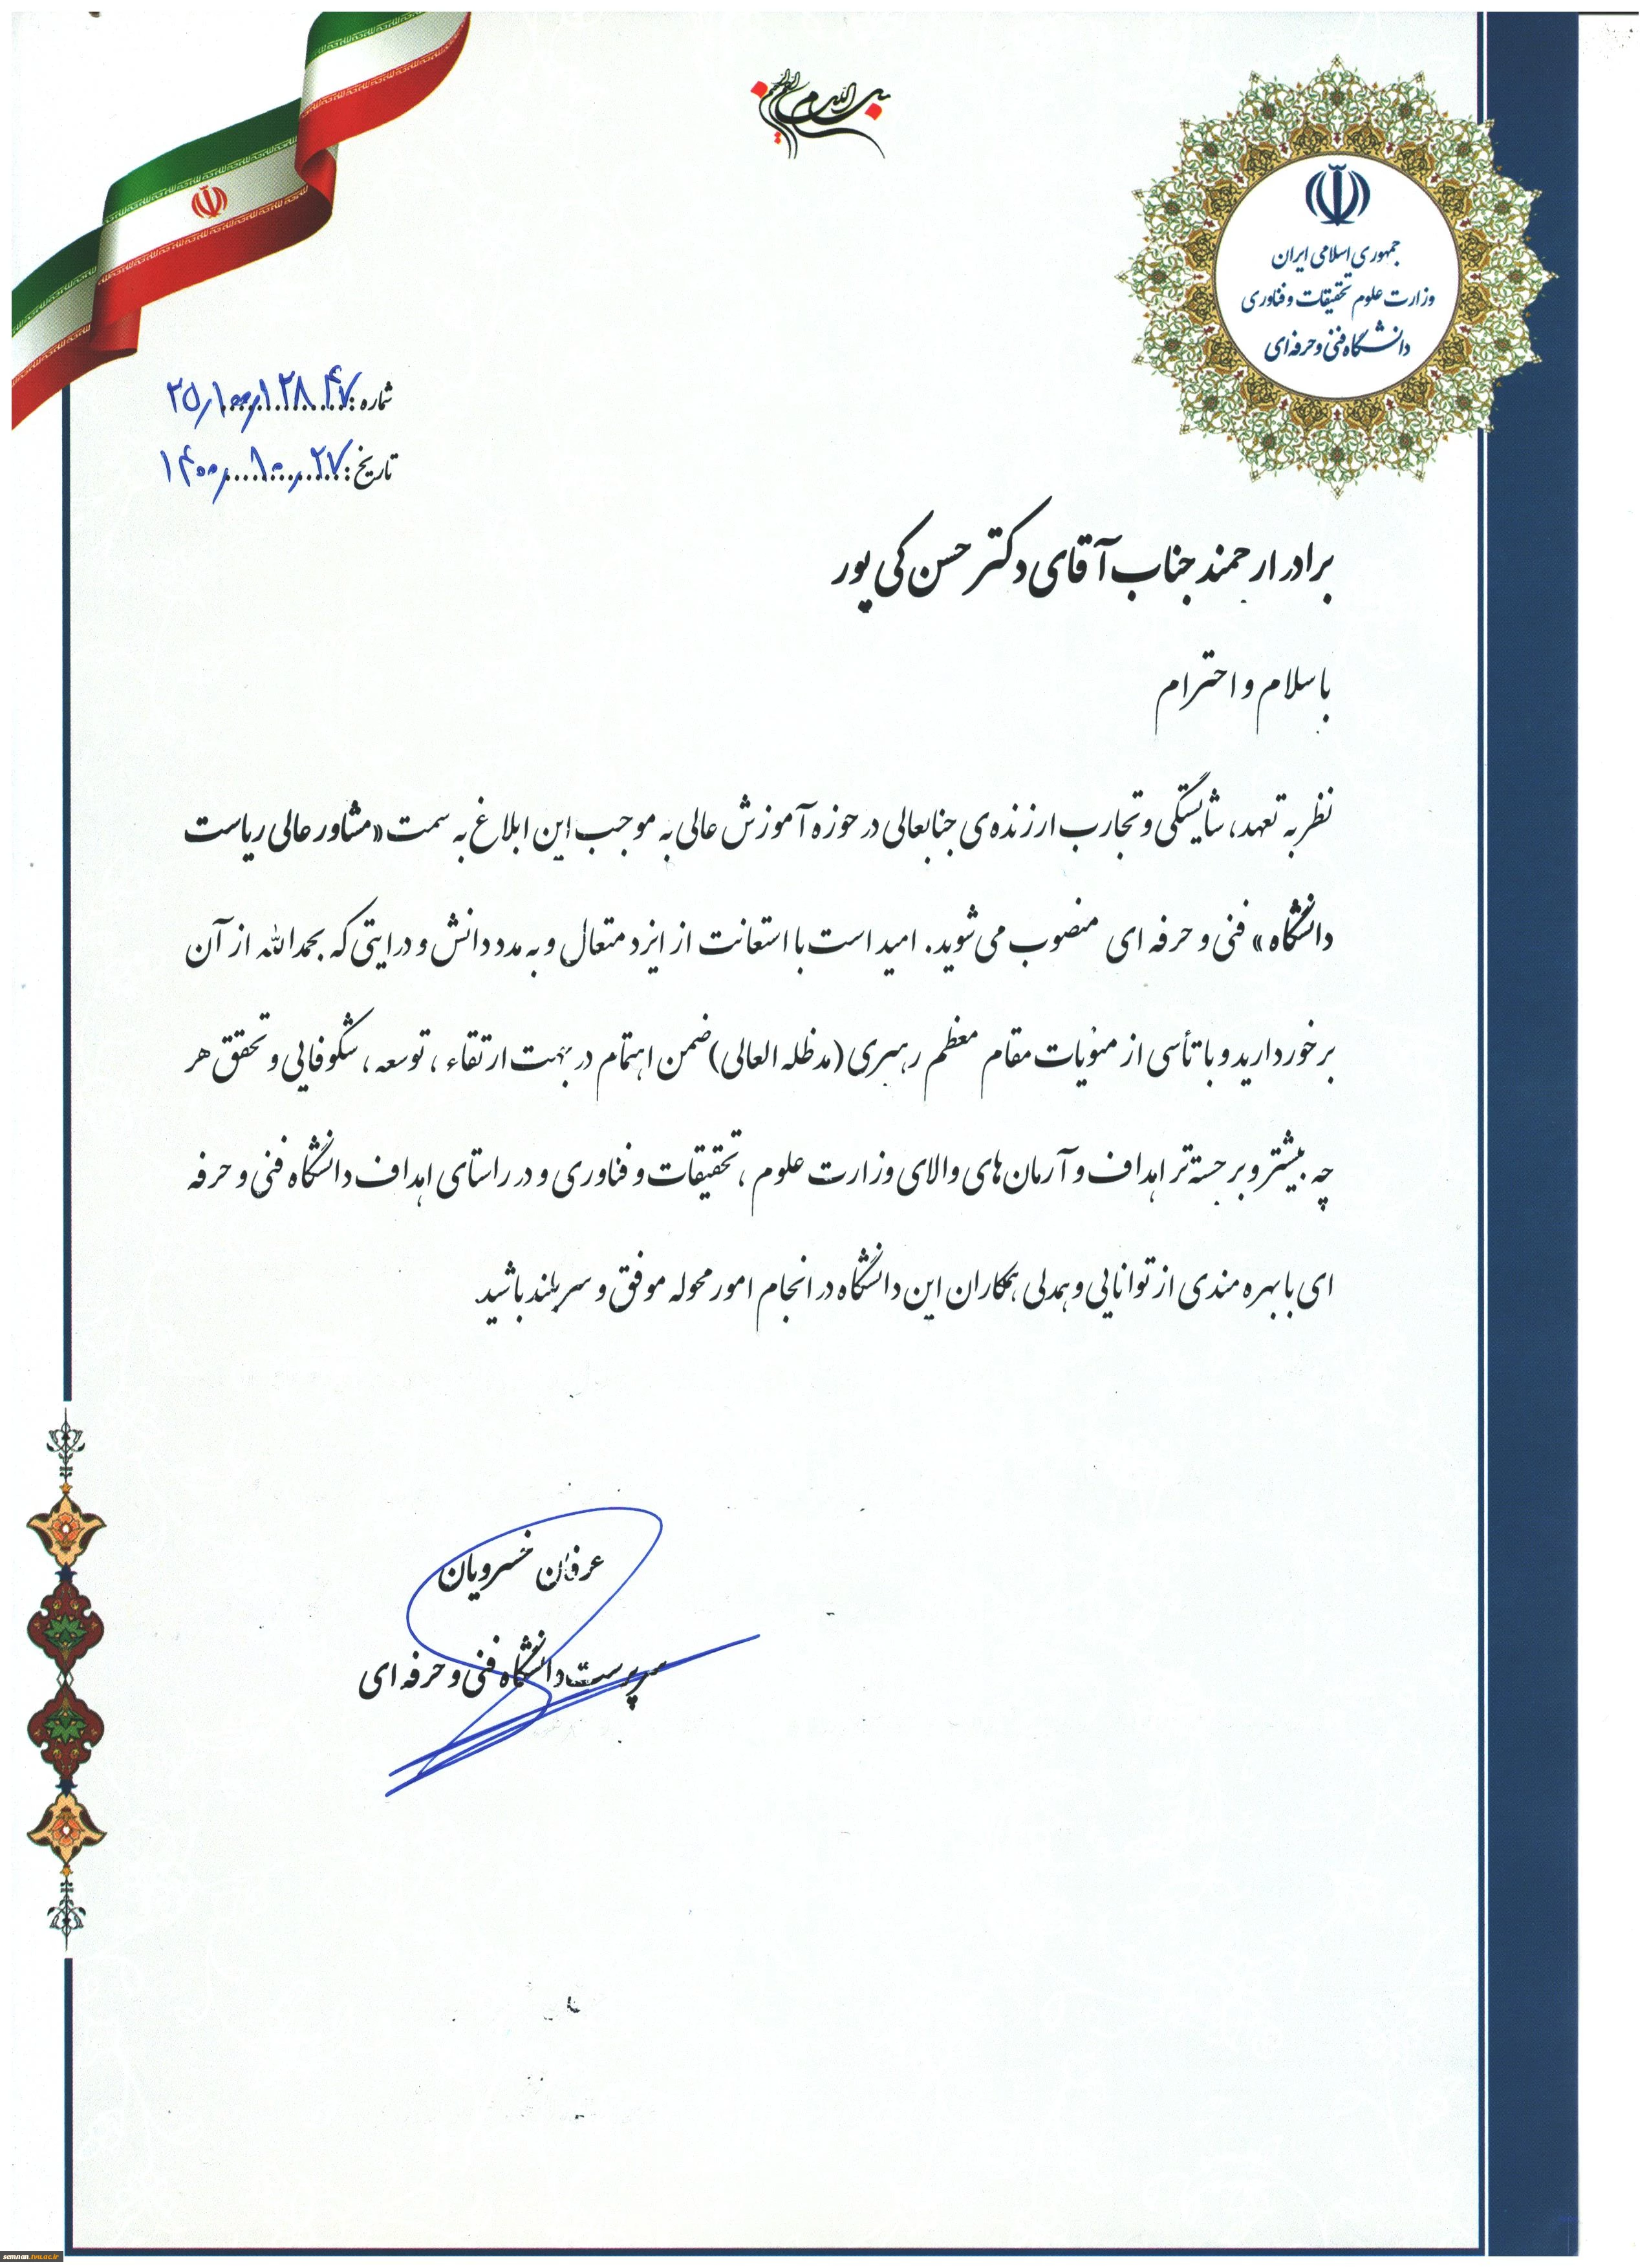 بسم الله الرحمن الرحیم
جمهوری اسلامی ایران
وزارت علوم تحقیقات و فناوری
دانشگاه فنی و حرفه‌ای
شماره:
تاریخ: ۱۴۰۰٫۱۰٫۲۷
برادر ارجمند جناب آقای دکتر حسن کی پور
با سلام و احترام
نظر به تعهد، شایستگی و تجارب ارزنده‌ی جنابعالی در حوزه آموزش عالی به موجب این ابلاغ به سمت «مشاور عالی ریاست
دانشگاه» فنی و حرفه ای منصوب می‌شوید. امید است با استعانت از ایزد متعال و به مدد دانش و درایتی که بحمدالله از آن
برخوردارید و با تأسی از منویات مقام معظم رهبری (مدظله العالی) ضمن اهتمام در جهت ارتقاء ، توسعه ، شکوفایی و تحقق هر
چه بیشتر و برجسته‌تر اهداف و آرمان‌های والای وزارت علوم ، تحقیقات و فناوری و در راستای اهداف دانشگاه فنی و حرفه
ای با بهره مندی از توانایی و همدلی همکاران این دانشگاه در انجام امور محوله موفق و سربلند باشید.
عرفان خسرویان
سرپرست دانشگاه فنی و حرفه ای
semnan.tvu.ac.ir